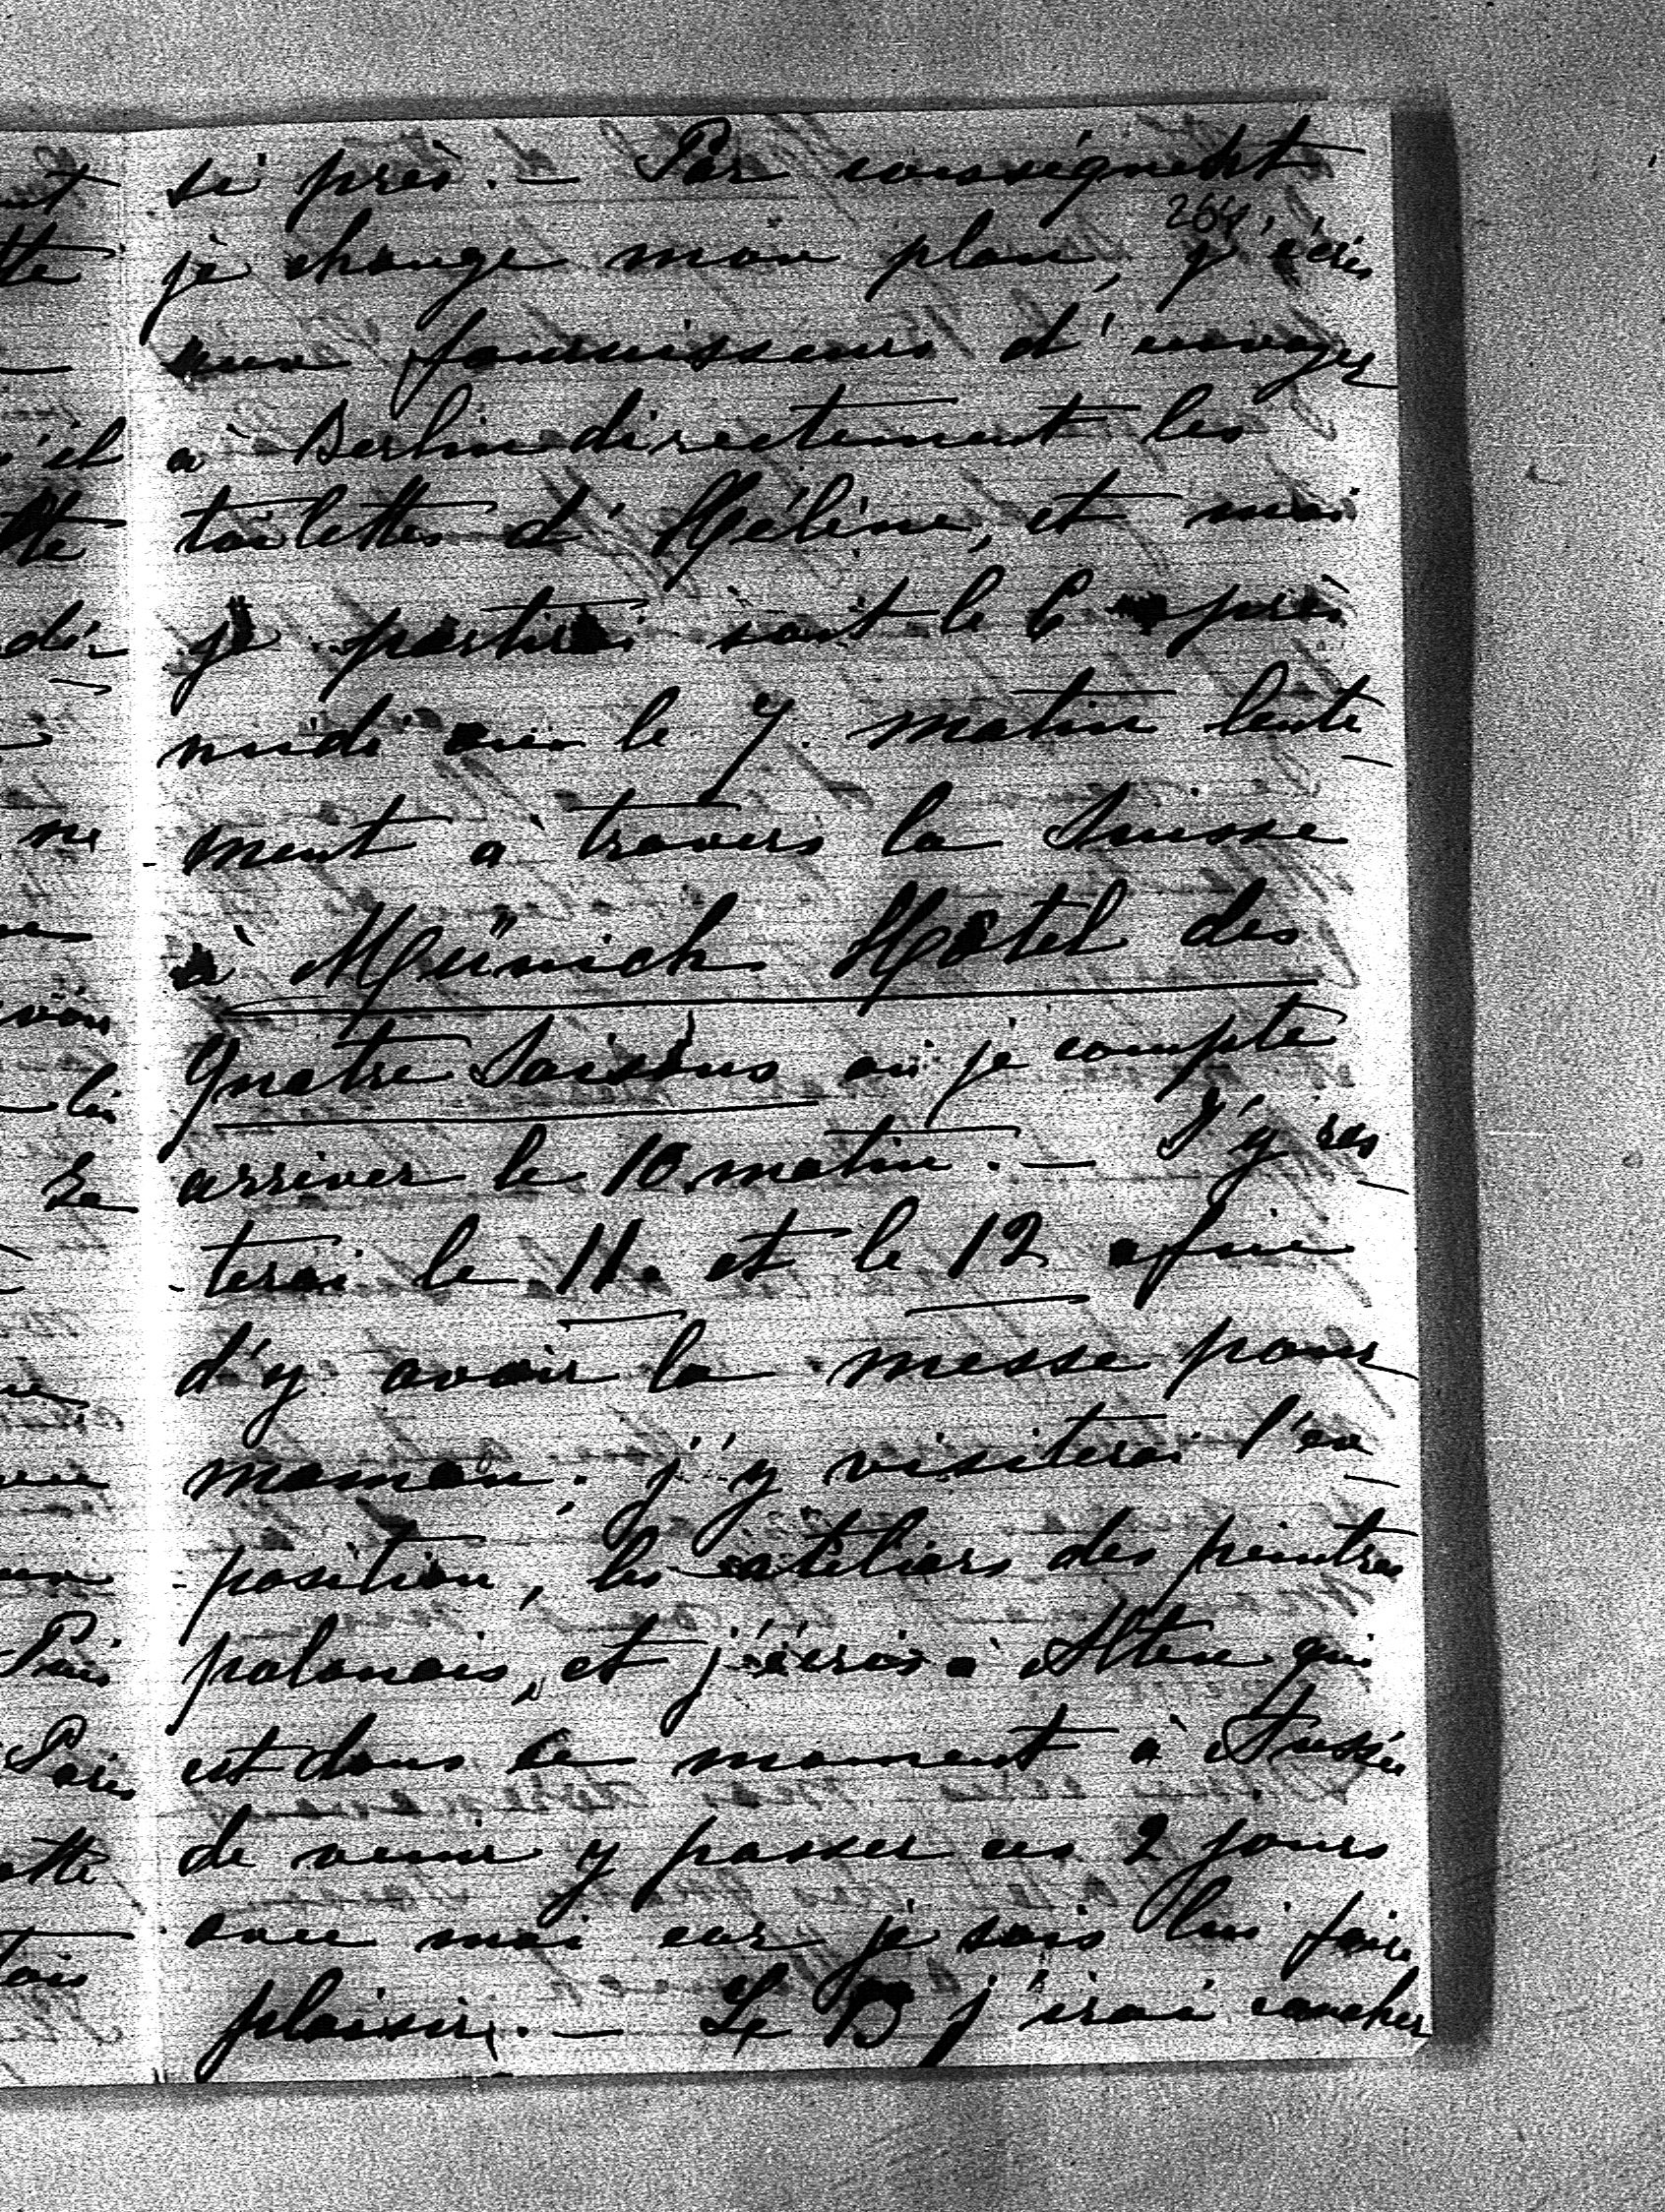 si près. — Par conséquent
264
je change mon plan, j'écris
aux fournisseurs d'envoyer
à Berlin directement les
toilettes d'Hélène, et moi
je partirai soit le 6 après
midi ou le 7. matin lente
ment à travers la Suisse
à Münich Hôtel des
Quatre Saisons où je compte
arriver le 10 matin. — J'y res
terai le 11. et le 12 afin
d'y avoir la messe pour
maman. j'y visiterai l'ex
position, les atéliers des peintres
polonais, et j'écris à
est dans ce moment à Aussée
de venir y passer ces 2 jours
avec moi car je sais lui faire
plaisir. — Le 13 j'irai coucher